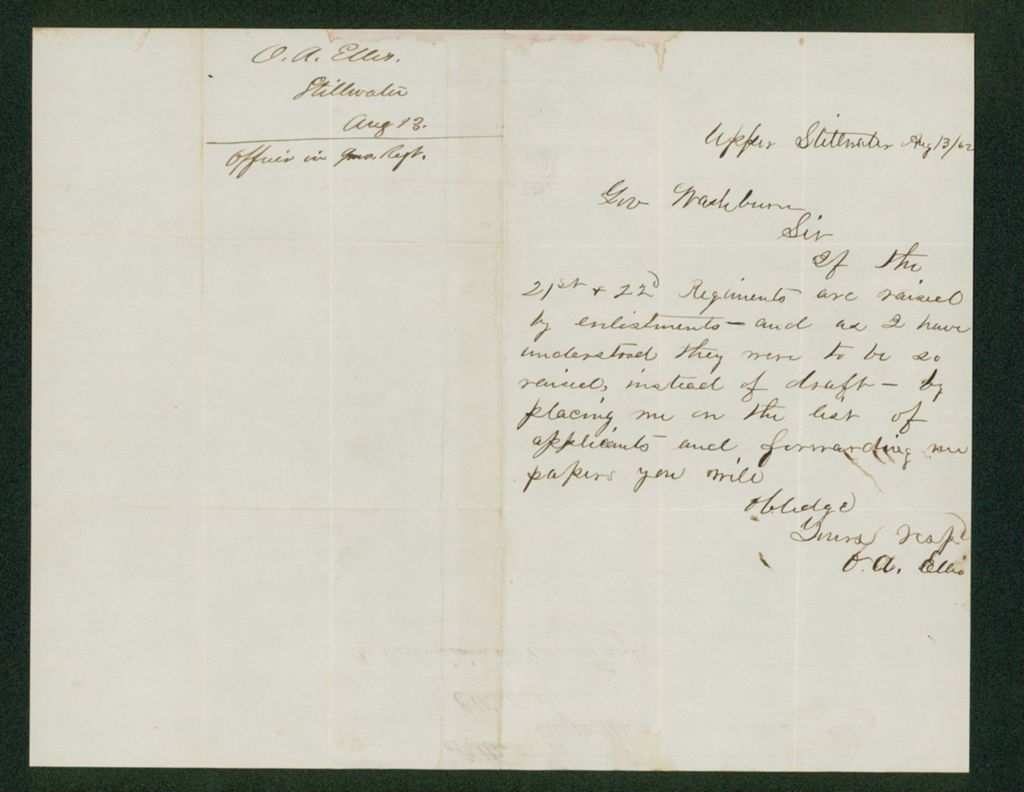 O. A. Ellis.
Stillwater
Aug 13.
Officer in 9mos. Regt.
Upper Stillwater Aug 13/62
Gov Washburn
Sir
If the
21st + 22d Regiments are raised
by enlistments — and as I have
understood they were to be so
raised, instead of draft — by
placing me on the list of
applicants and forwarding me
papers you will
obledge
Yours Resp'd
O. A. Ellis